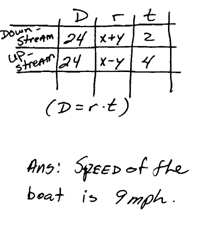 D r t
Down-
Stream 24 x+y 2
up-
stream 24 x-y 4
(D=r·t)
Ans: Speed of the
boat is 9mph.